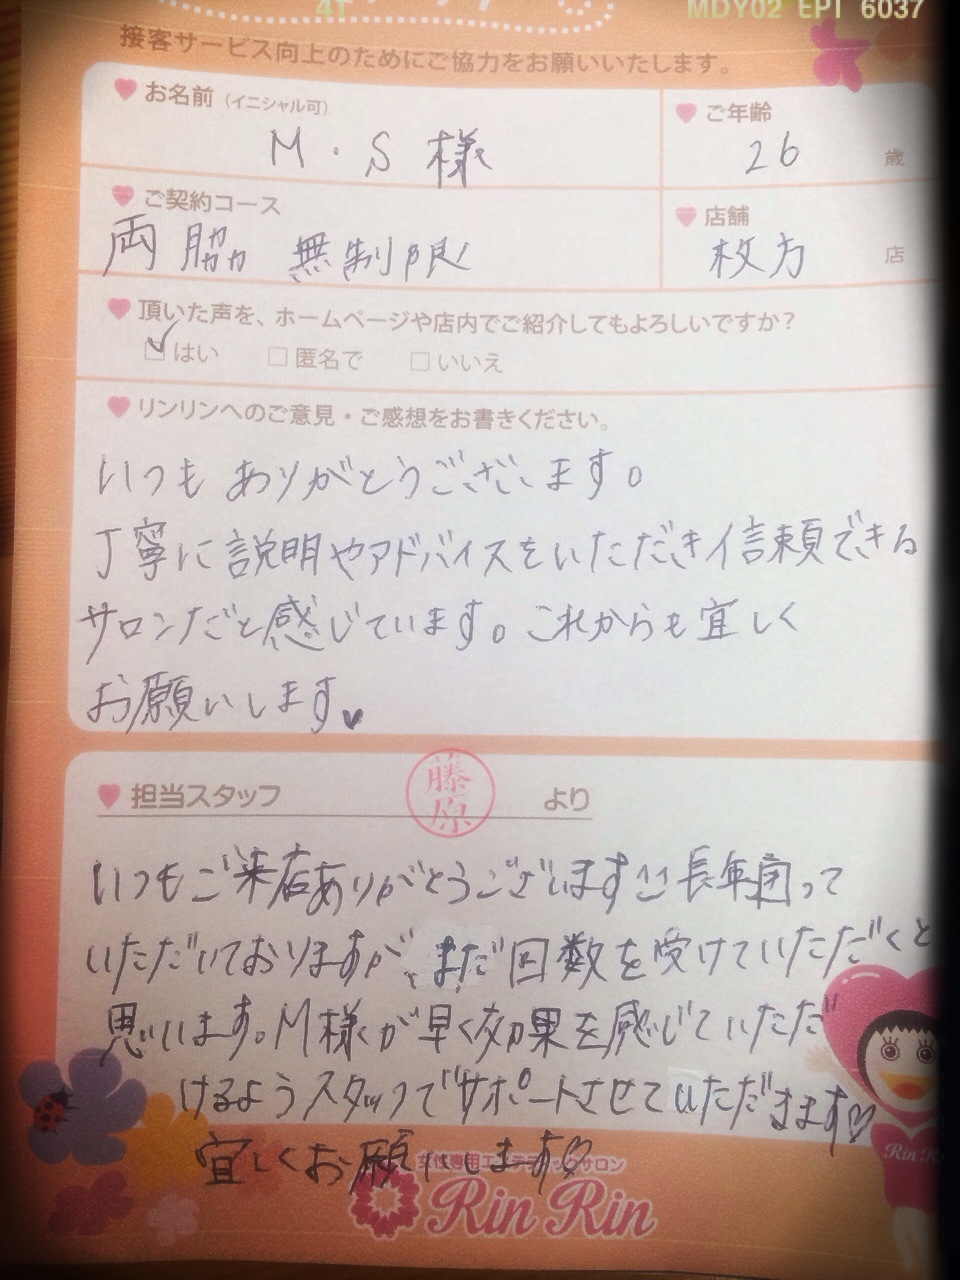 4T
MDY02 EPI 6037
接客サービス向上のためにご協力をお願いいたします。
お名前（イニシャル可）
M・S 様
ご年齢
26 歳
ご契約コース
両脇 無制限
店舗
枚方 店
頂いた声を、ホームページや店内でご紹介してもよろしいですか？
はい □匿名で □いいえ
リンリンへのご意見・ご感想をお書きください。
いつも ありがとうございます。
丁寧に説明やアドバイスをいただき信頼できる
サロンだと感じています。これからも宜しく
お願いします♥
担当スタッフ 藤原 より
いつもご来店ありがとうございます 長年通って
いただいておりますが、まだ回数を受けていただくと
思います。M様が早く効果を感じていただ
けるようスタッフでサポートさせていただきます♡
宜しくお願いします♡
女性専用エステティックサロン
Rin Rin
Rin R